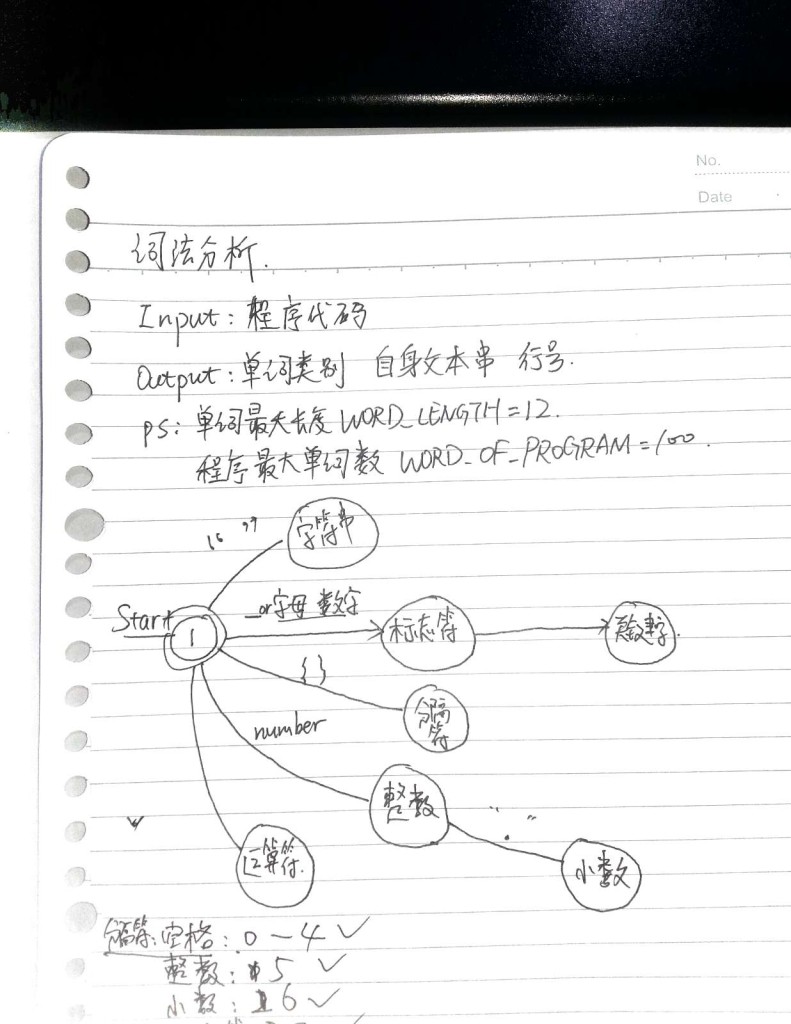 No.
Date
词法分析.
Input: 程序代码
Output: 单词类别 自身文本串 行号.
PS: 单词最大长度 WORD_LENGTH=12.
程序最大单词数 WORD_OF_PROGRAM=100.
“ ” 字符串
Start 1 _or字母 数字 标志符
{ } 分隔符
number 整数 “ . ” 小数
运算符.
分隔符: 空格: 0-4 ✓
整数: 5 ✓
小数: 6 ✓